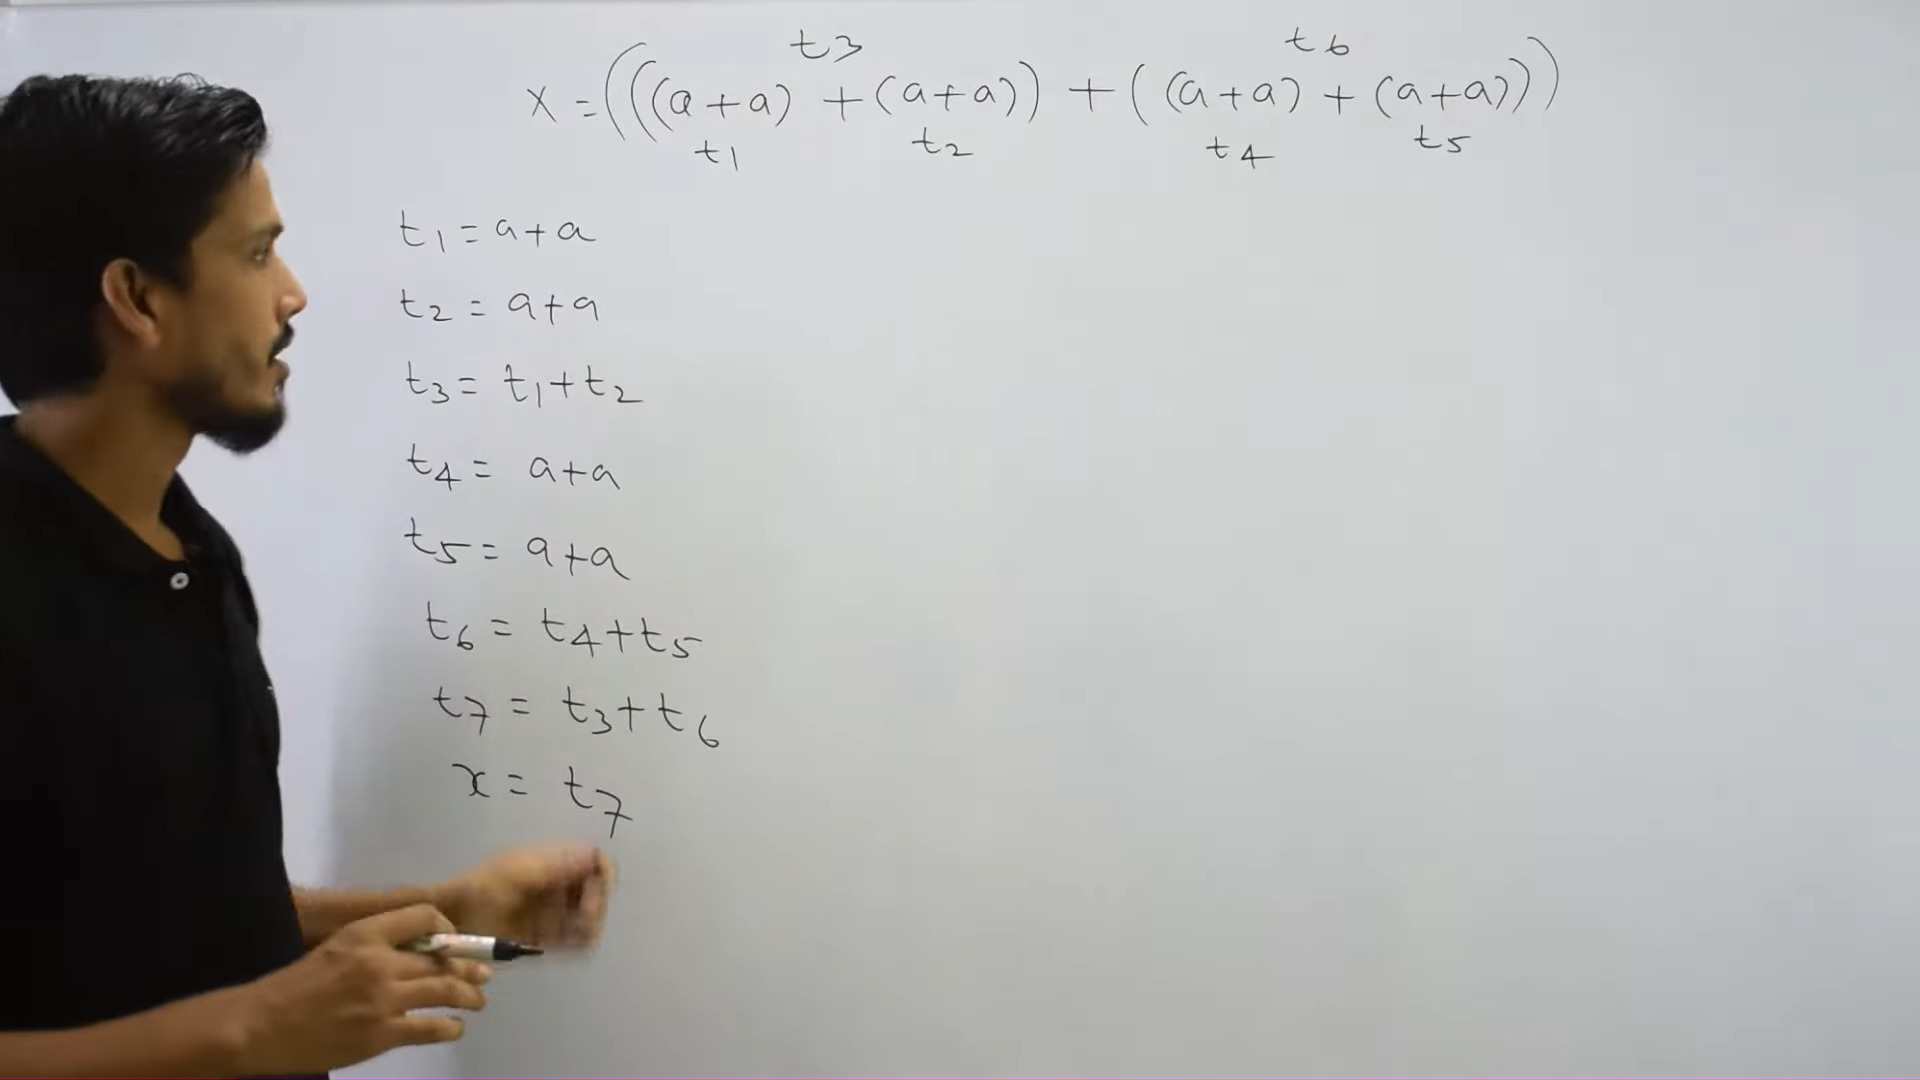 t3 t6
x = (((a+a) + (a+a)) + ((a+a) + (a+a)))
t1 t2 t4 t5
t1 = a+a
t2 = a+a
t3 = t1+t2
t4 = a+a
t5 = a+a
t6 = t4+t5
t7 = t3+t6
x = t7